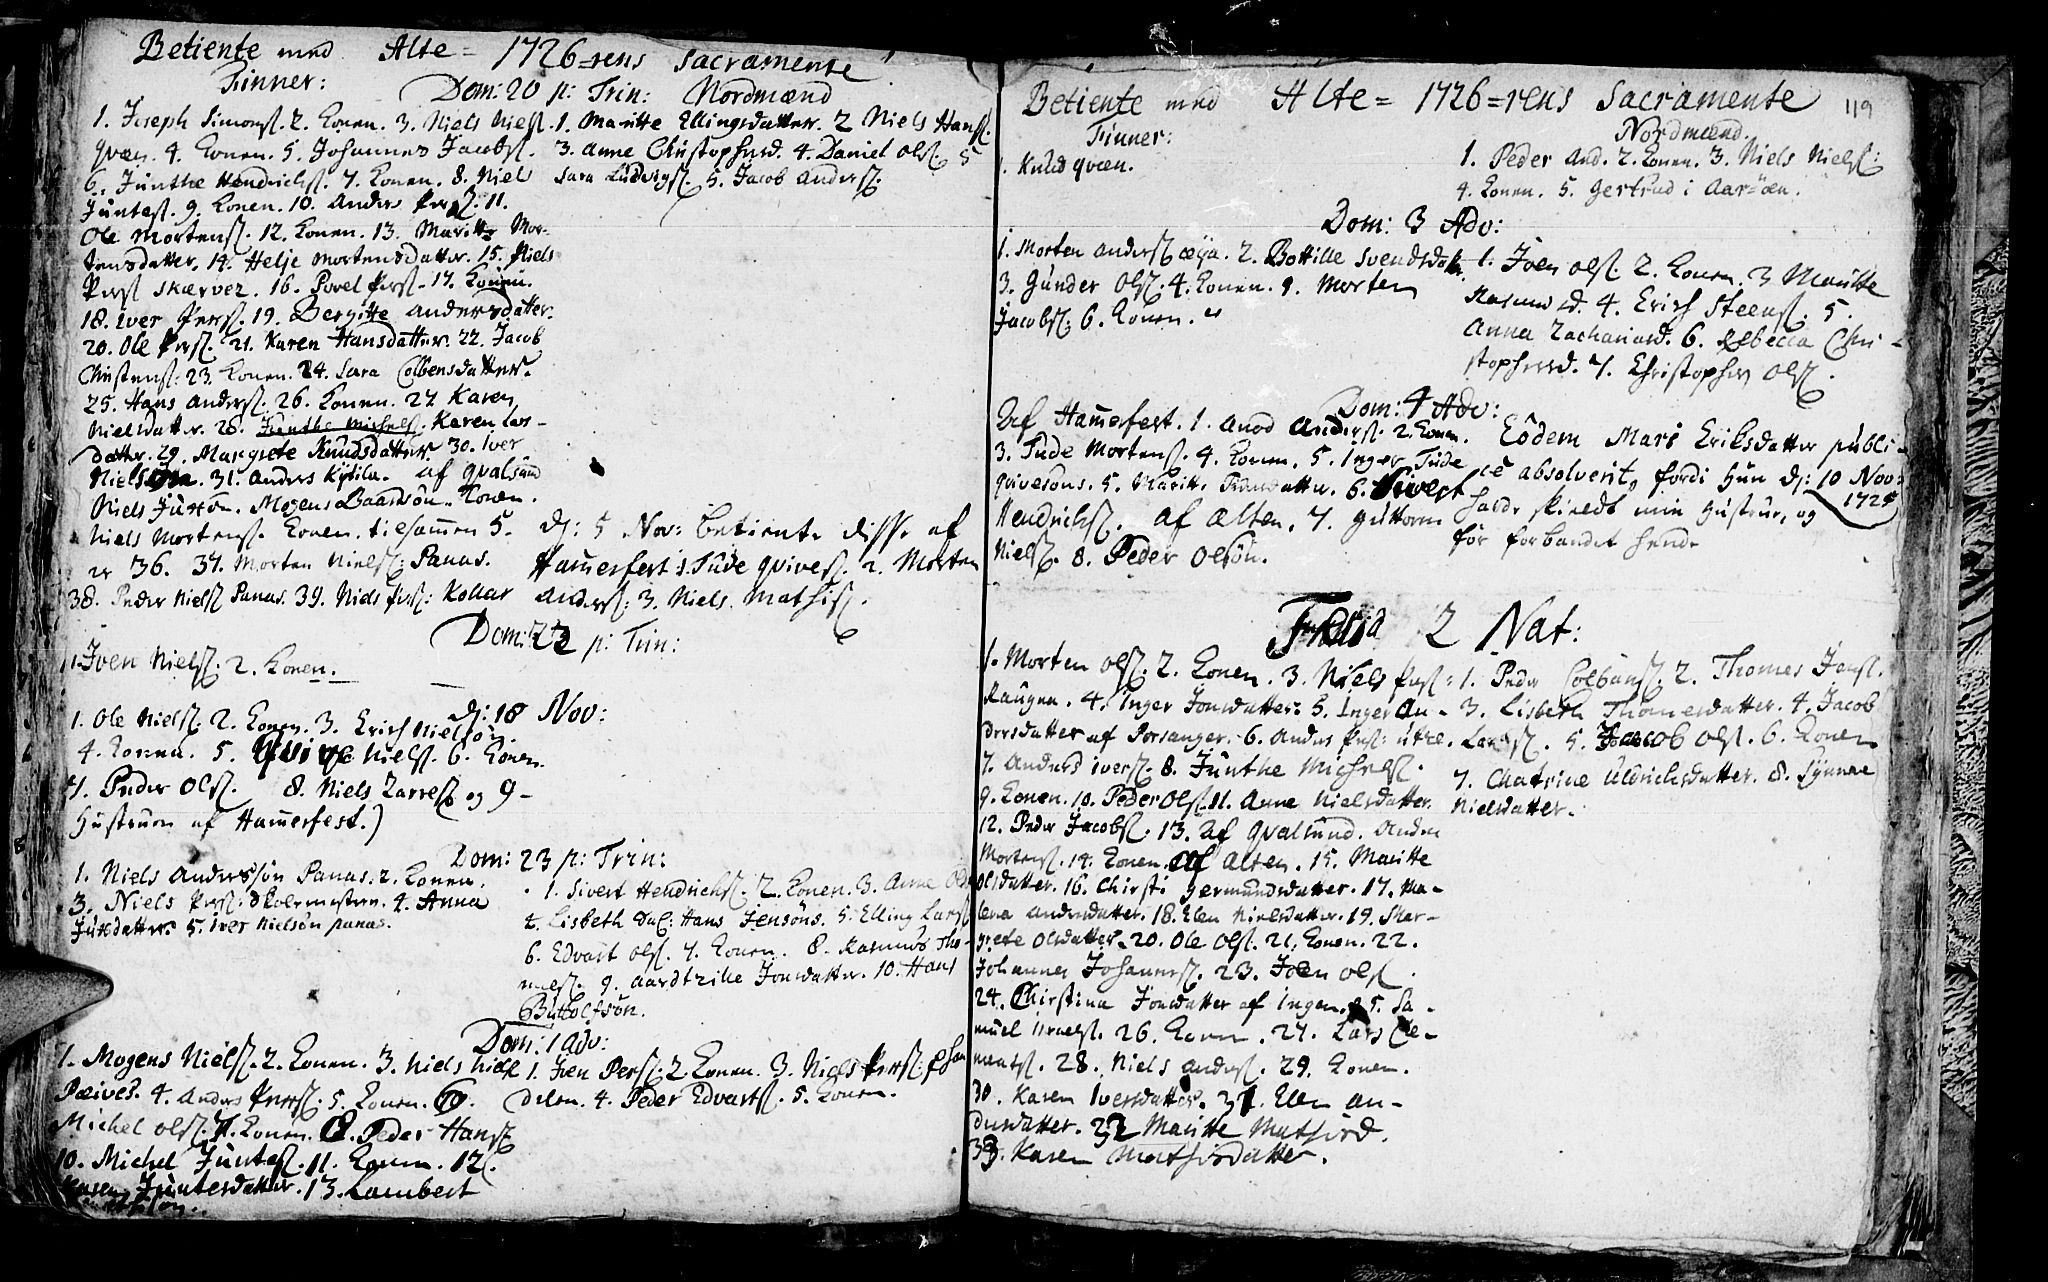 Betiente med Alte= 1726=rens Sacramente
Finner:
Dom: 20 p: Trin: Nordmænd
1. Joseph Simons. 2. Konen. 3. Niels Niels.
qvæn. 4. Konen. 5. Johannes Jacobs.
6. Junthe Hendrichs. 7. Konen. 8. Niels
Juntes. 9. Konen. 10. Anders Pers. 11.
Ole Mortens. 12. Konen. 13. Maritte Mor-
tensdatter. 14. Helje Mortensdatter. 15. Niels
Pers Skærvez. 16. Povel Pers. 17. Konen.
18. Iver Pers. 19. Bergitte Andersdatter.
20. Ole Pers. 21. Karen Hansdatter. 22. Jacob
Christens: 23. Konen. 24. Sara Colbensdatter.
25. Hans Anders. 26. Konen. 27 Karen
Nielsdatter. 28. Junthe Michels. Karen Lars-
datter. 29. Margrete Knudsdatter 30. Iver
Niels. 31. Anders Kitila. af qvalsund
Niels Juson. Mogens Baardsøn. Konen.
Niels Mortens. Konen. tilsamen 5.
er 36. 37. Morten Niels: Panas.
38. Peder Niels Panas. 39. Niels Pers: Kollar
1. Maritte Ellingsdatter. 2 Niels Hans.
3. Anne Christophersd. 4. Daniel Ols. 5
Sara Ludvigs. 5. Jacob Anders.
d: 5 Nov: betiente diss. af
Hamerfest 1. Tude qvives. 2. Morten
Anders: 3. Niels Mathis.
Dom: 22 p: Trin:
1. Iven Niels. 2. Konen.
d: 18 Nov:
1. Ole Niels: 2. Konen. 3. Erich Nielsøn.
4. Konen. 5. qvive Niels. 6. Konen.
7. Peder Ols. 8. Niels Larses og 9-
Hustruen af Hamerfest.)
Dom: 23 p: Trin:
1. Niels Andersøn Panas. 2. Konen.
3. Niels Pers: Skolemester. 4. Anna
Jusdatter. 5. Iver Nielsøn panas.
1. Sivert Hendrichs. 2. Konen. 3. Anne
4. Lisbeth Hans Jensøns. 5. Elling Lars
6. Edvart Ols. 7. Konen. 8. Rasmus Tho-
mes. 9. Aardtrike Jonsdatter. 10. Hans
Botolfsøn.
Dom: 1 Adv:
1. Mogens Niels. 2. Konen. 3. Niels Niels
Pæives. 4. Anders Pers. 5. Konen. 6.
Michel Ols. 7. Konen. 8. Peder Hans
10. Michel Juntes. 11. Konen. 12.
Karen Juntesdatter. 13. Lambert
1. Iven Pers. 2 Konen. 3. Niels Pers:
4. Peder Edvarts. 5. Konen.
Betiente med Alte= 1726=rens Sacramente 119
Finner:
Nordmænd.
1. Knud qvæn.
1. Peder And. 2. Konen. 3. Niels Niels:
4. Konen. 5. Gertrud i Aarøen.
Dom: 3 Adv:
1. Morten Anders æija. 2. Bottille Svendsdatt.
3. Gunder Ols. 4. Konen. 9. Morten
Jacobs. 6. Konen.
1. Iven Ols. 2. Konen. 3 Maritte
Rasmusd. 4. Erich Steens. 5.
Anna Zachariasd. 6. Rebecca Chri-
stophersd. 7. Christopher Ols.
Dom: 4 Adv:
Af Hamerfest. 1. Anders. 2. Konen.
3. Tude Mortens. 4. Konen. 5. Inger Tude
qvivesøns. 5. Maritte 6. Sivert
Hendrichs. af Alten. 7. Guttorm
Niels. 8. Peder Olsøn.
Eôdem Mari Eriksdatter publi-
ce absolverit, fordi hun d: 10 Nov:
1725
hafde skieldt min hustrue, og
før forbandet hende
2 Nat:
1. Morten Ols. 2. Konen. 3. Niels Pers:
Raugen. 4. Inger Jonsdatter. 5. Inger An-
dersdatter af Porsanger. 6. Anders Pers:
7. Anders Ivers. 8. Junthe Michels.
9. Konen. 10. Peder Ols. 11. Anne Nielsdatter.
12. Peder Jacobs. 13. Af qvalsund. Anders
Mortens. 14. Konen. Af Alten. 15. Maritte
Olsdatter. 16. Chirsti Germundsdatter. 17. Ma-
lena Andersdatter. 18. Elen Nielsdatter. 19. Mar-
grete Olsdatter. 20. Ole Ols. 21. Konen. 22.
Johannes Johanns. 23. Iven Ols
24. Chirstina Jonsdatter af Ingen. 25. Sa-
muel Israels. 26. Konen. 27. Lars Cle-
ments. 28. Niels Anders. 29. Konen.
30. Karen Iversdatter. 31. Elen An-
dersdatter. 32 Maritte Mathisd.
33. Karen Mathisdatter.
1. Peder Colbens. 2. Thomes Jens.
3. Lisbeth Thomesdatter. 4. Jacob
Lars. 5. Jacob Ols. 6. Konen
7. Chatrine Uldrichsdatter. 8. Synnae
Nielsdatter.